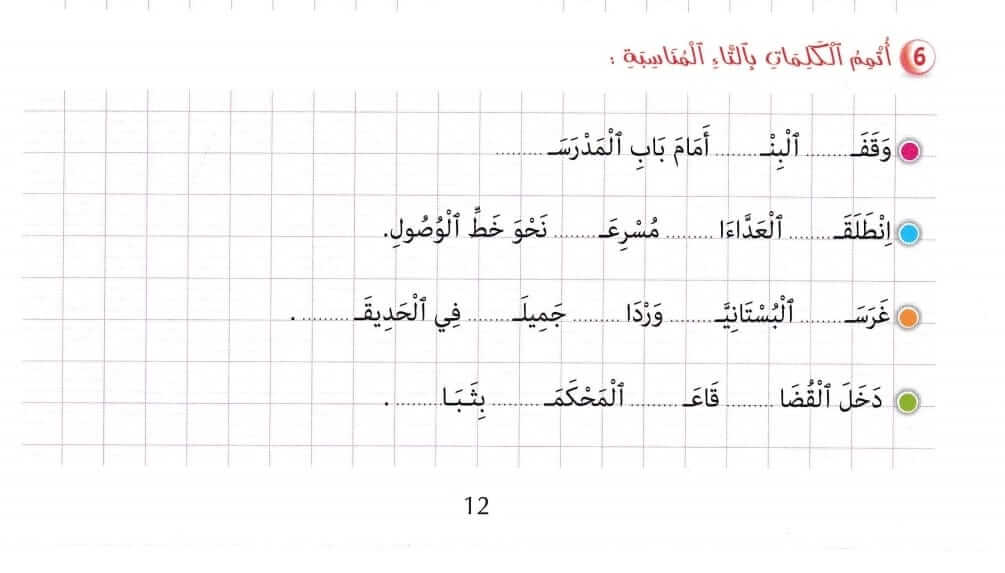 6 أُتْمِمُ ٱلْكَلِمَاتِ بِٱلتَّاءِ ٱلْمُنَاسِبَةِ :
وَقَفَـ......... ٱلْبِنْـ......... أَمَامَ بَابِ ٱلْمَدْرَسَـ..........
اِنْطَلَقَـ......... ٱلْعَدَّاءَا.......... مُسْرِعَـ......... نَحْوَ خَطِّ ٱلْوُصُولِ.
غَرَسَـ......... ٱلْبُسْتَانِيَّـ......... وَرْدَا.......... جَمِيلَـ......... فِي ٱلْحَدِيقَـ.......... .
دَخَلَ ٱلْقُضَا.......... قَاعَـ.......... ٱلْمَحْكَمَـ.......... بِثَبَا.......... .
12